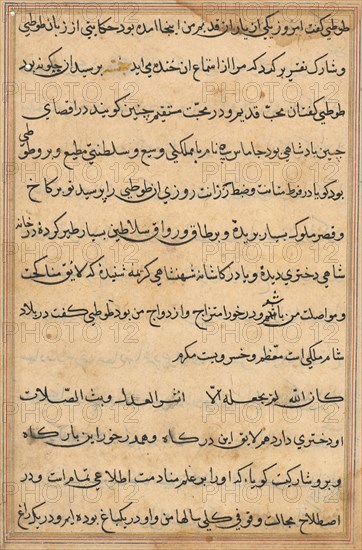 طوطی گفت امروز یکی از یاران قدیم من اینجا آمده بود حکایتی از زبان طوطی
و شارک تقریر کرد که مرا از استماع آن خنده می آید پرسید آن چگونه بود
طوطی گفت آن محب قدیم و در محبت مستقیم چنین گویند در اقصای
چین پادشاهی بود جاماس نام با مملکتی وسیع و سلطنتی مطیع و بر و طوطی
بود گویا در فرط متانت و ضبط گذرانت روزی از طوطی را پرسید تو بر کاخ
و قصر ملوک بسیار پریدۀ و بر طاق و رواق سلاطین بسیار طیر کردۀ در خانه
شاهی دختری دیدۀ و یا در کاشانه شهنشاهی کریمه شنیدۀ که لایق مناکحت
و مواصلت من باشد و در خور امتزاج و ازدواج من بود طوطی گفت در بلاد
شام ملکی است معظم و خسرویت مکرم
کان الله لم یجعله الا لنشر العدل و بث الصلات
او دختری دارد هم لایق این درگاه و هم در خور این بارگاه
و بر و شارکیت گویا که او را بر علم منادمت اطلاعی تمام است و در
اصطلاح مجالست وقوفی کلی سالها من و او در یک باغ بوده ایم و در یک راغ